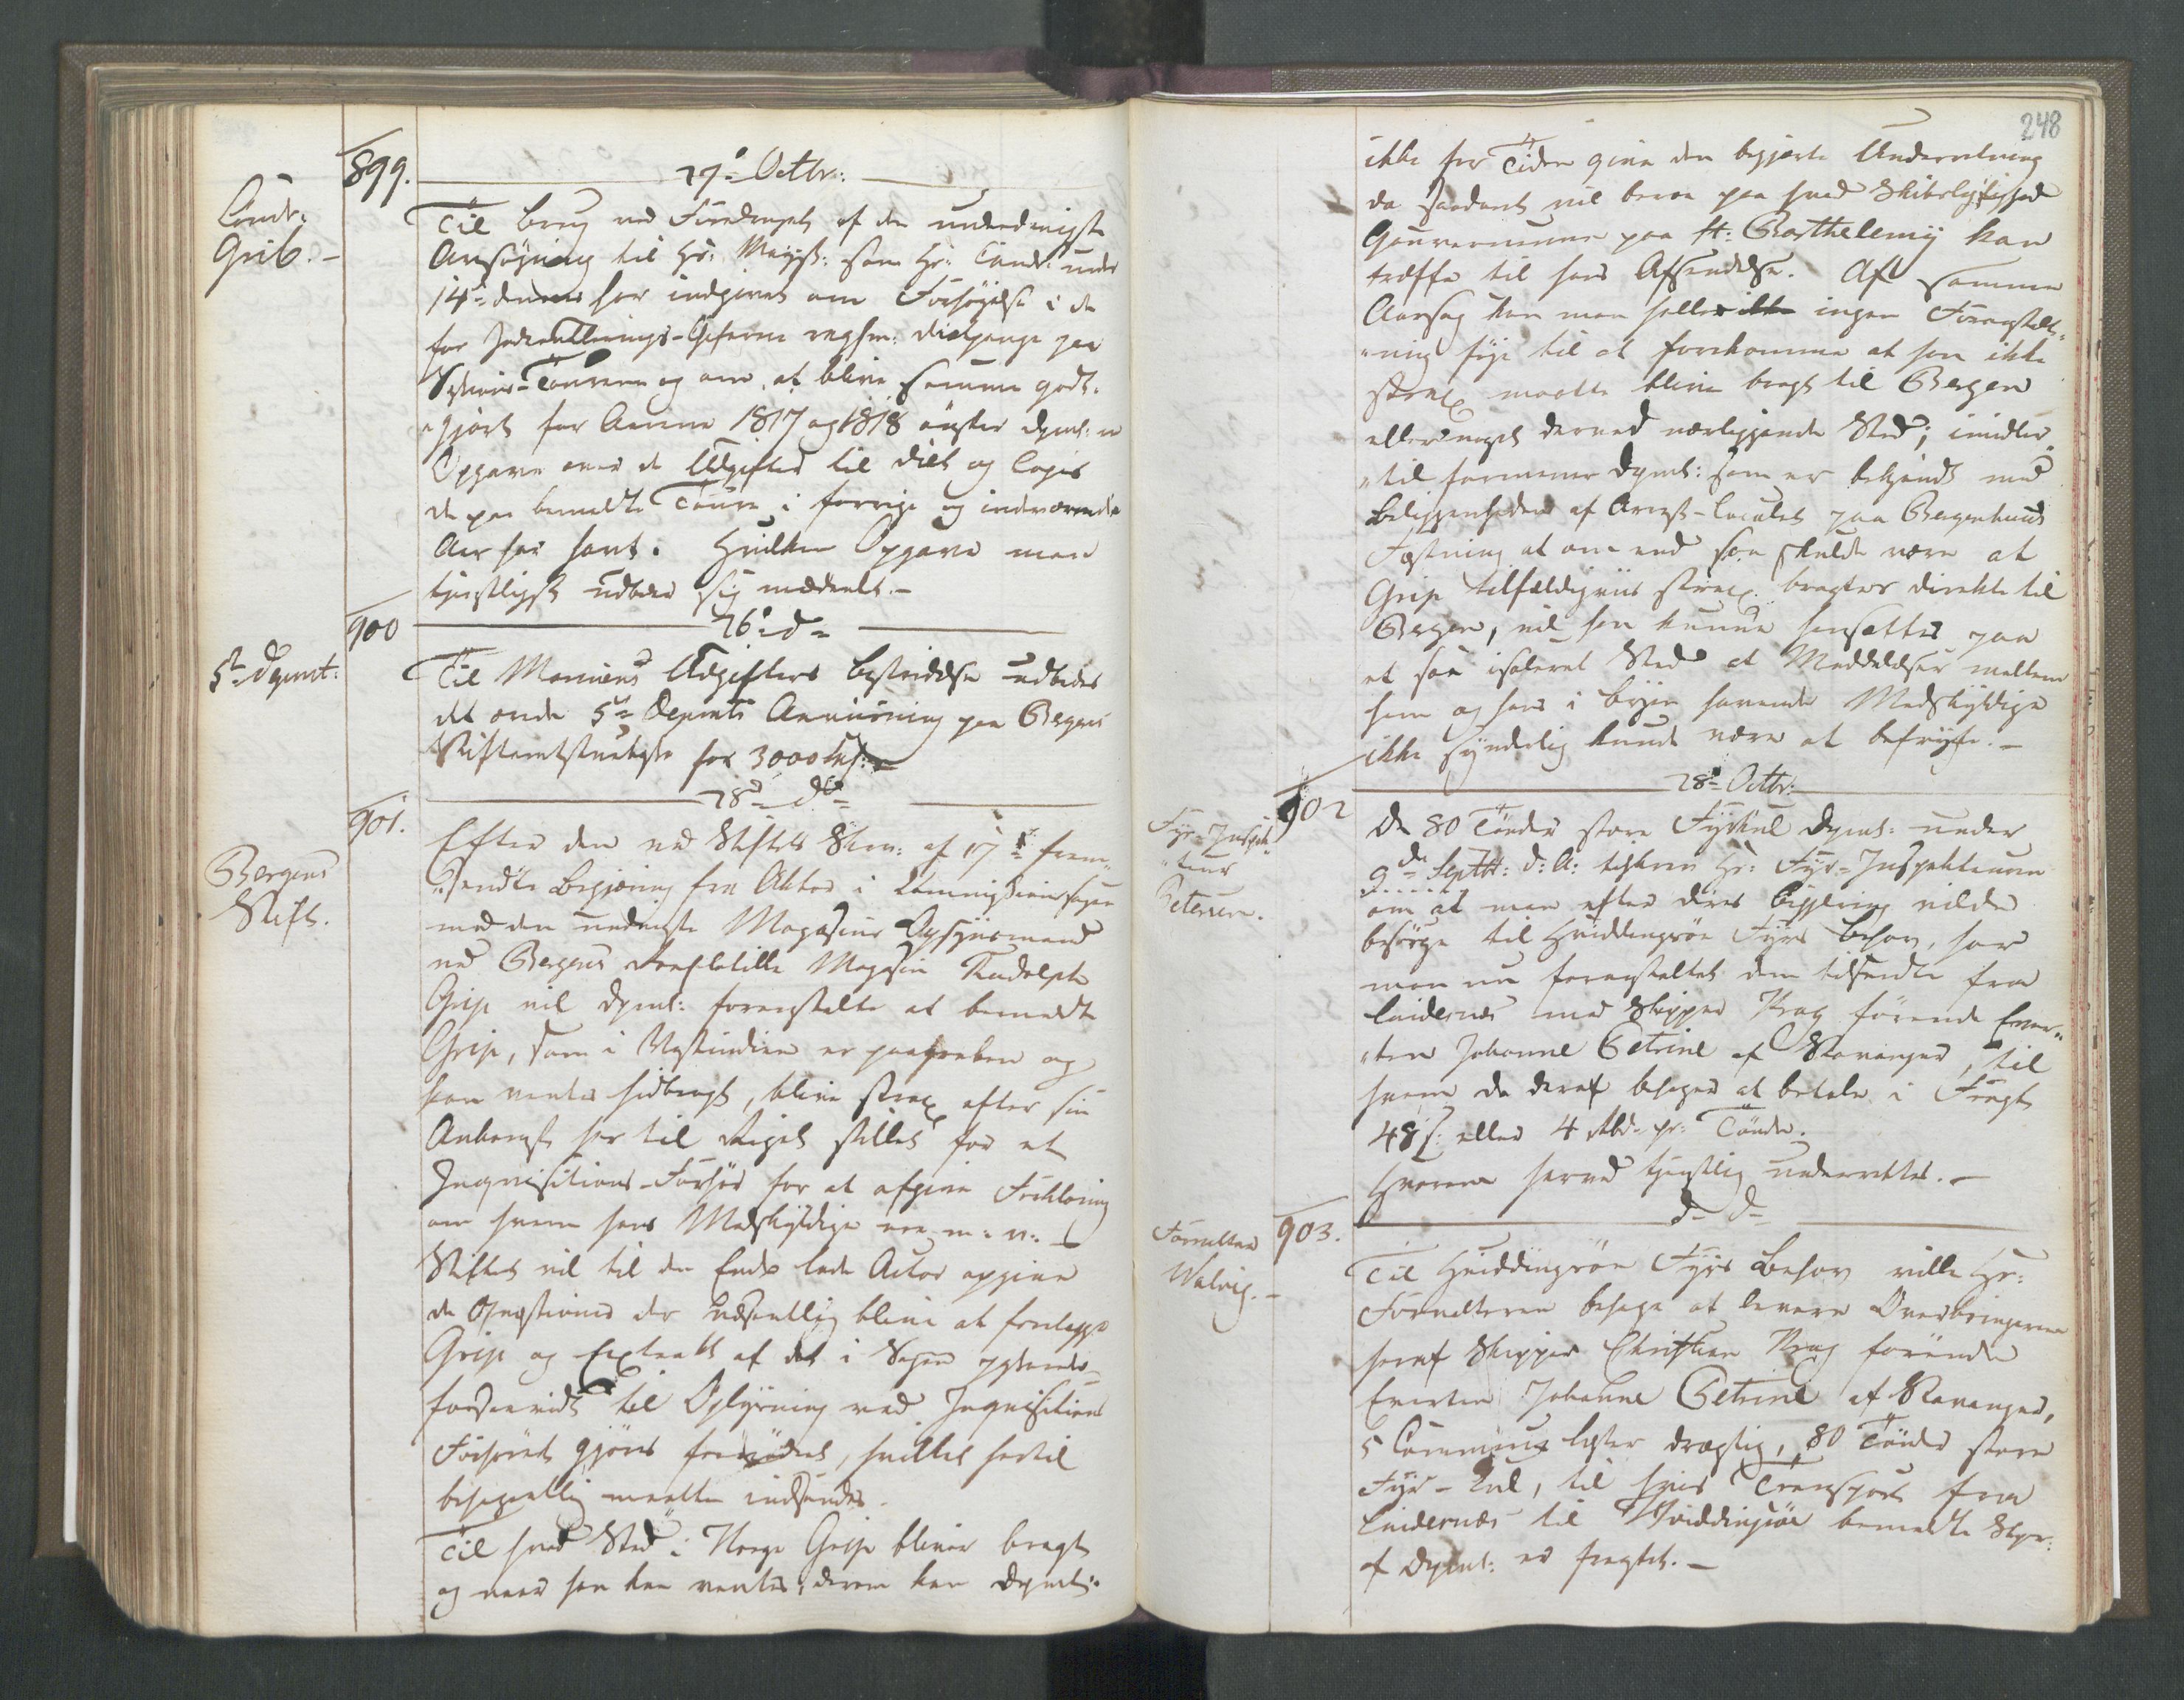 899.
27de Octbr:
Comdr:
Grib. -
Til Brug ved Foredraget af den underdanigste
Ansøgning til Hs: Majst: som Hr: Comdr: under
14de dennes har indgivet om Forhøyelse i de
for Indrulleringscheferne regltm: Diætpenge paa
Sessions-Tourene og om at blive samme godt-
gjort for Aarene 1817 og 1818 ønsker Dpmt: en
Opgave over de Udgifter til Diæt og Logis
de paa bemeldte Toure i forrige og indeværende
Aar har havt. Hvilken Opgave man
tjenstligst udbeder sig meddeelt. -
900
26de do
5te Dpmt:
Til Marinens Udgifters Bestridelse udbedes
det ærede 5te Depmts Anviisning paa Bergens
Stiftamtstue for 3000
901.
28de do
Bergens
Stift.
Efter den ved Stiftets Skr: af 17de frem-
sendte Begjæring fra Aktor i Commissionssagen
mod den Magasins Opsynsmand
ved Bergens Magasin Rudolph
Grip vil Dpmt: foranstalte at bemeldte
Grip, som i Vestindien er paagreben og
kan ventes hidbragt, blive strax efter sin
Ankomst her til Riget stillet for et
Inqvisitions-Forhør for at afgive Forklaring
om hvem hans Medskyldige ere m: v: -
Stiftet vil til den Ende lade Actor opgive
de Qvæstioner der blive at forelægge
Grip og Extrakt af det i Sagen
til Oplysning ved Inqvisitions
Forhøret gjøres fornødent, hvilket hertil
behageligt maatte indsendes.
Til hvad Sted i Norge Grip bliver bragt
og naar han kan ventes, derom kan Dpmt:
248
ikke for Tiden give den begjærte Underretning
da saadant vil beroe paa hvad Skibsleylighed
Gouverneuren paa St: Barthelemy kan
træffe til hans Afsendelse. Af samme
Aarsag kan man heller ikke ingen Foranstalt-
ning føje til at forekomme at han ikke
strax maatte blive bragt til Bergen
eller noget derved nærliggende Sted; imidler-
til formener Dpmt: som er bekjendt med
Beliggenheden af Arrest-Localet paa Bergenhuus
Fæstning at om end saa skulde være at
Grip tilfældigviis strax bragtes direkte til
Bergen, vil han kunne hensættes paa
et saa isoleret Sted at Meddelelser mellem
ham og hans i Byen havende Medskyldige
ikke synderlig kunde være at befrygte. -
28de Octbr:
902
Fyr-Inspek-
teur
Petersen.
De 80 Tønder store Fyrkul Dpmt: under
9de Septbr: d: A: tilskrev Hr: Fyr-Inspekteuren
om at man efter deres Begjæring vilde
besørge til Hviddingsøe Fyrs Behov, har
man nu foranstaltet dem tilsendte fra
Lindesnæs med Skipper Krag førende Ever-
ten Johanne Petrine af Stavanger, til
hvem de deraf behager at betale i Fragt
48 s: eller 4 pr: Tønde.
Hvorom herved tjenstlig underrettes. -
do do
903.
Forvalter
Walvig. -
Til Hviddingsøe Fyrs Behov ville Hr:
Forvalteren behage at levere Overbringeren
heraf Skipper Christian Krag førende
Everten Johanne Petrine af Stavanger,
5 Commerce Læster drægtig, 80 Tønder store
Fyr-Kul, til hvis Transport fra
Lindesnæs til Hviddingsøe bemeldte Skpr:
af Dpmt: er fragtet. -